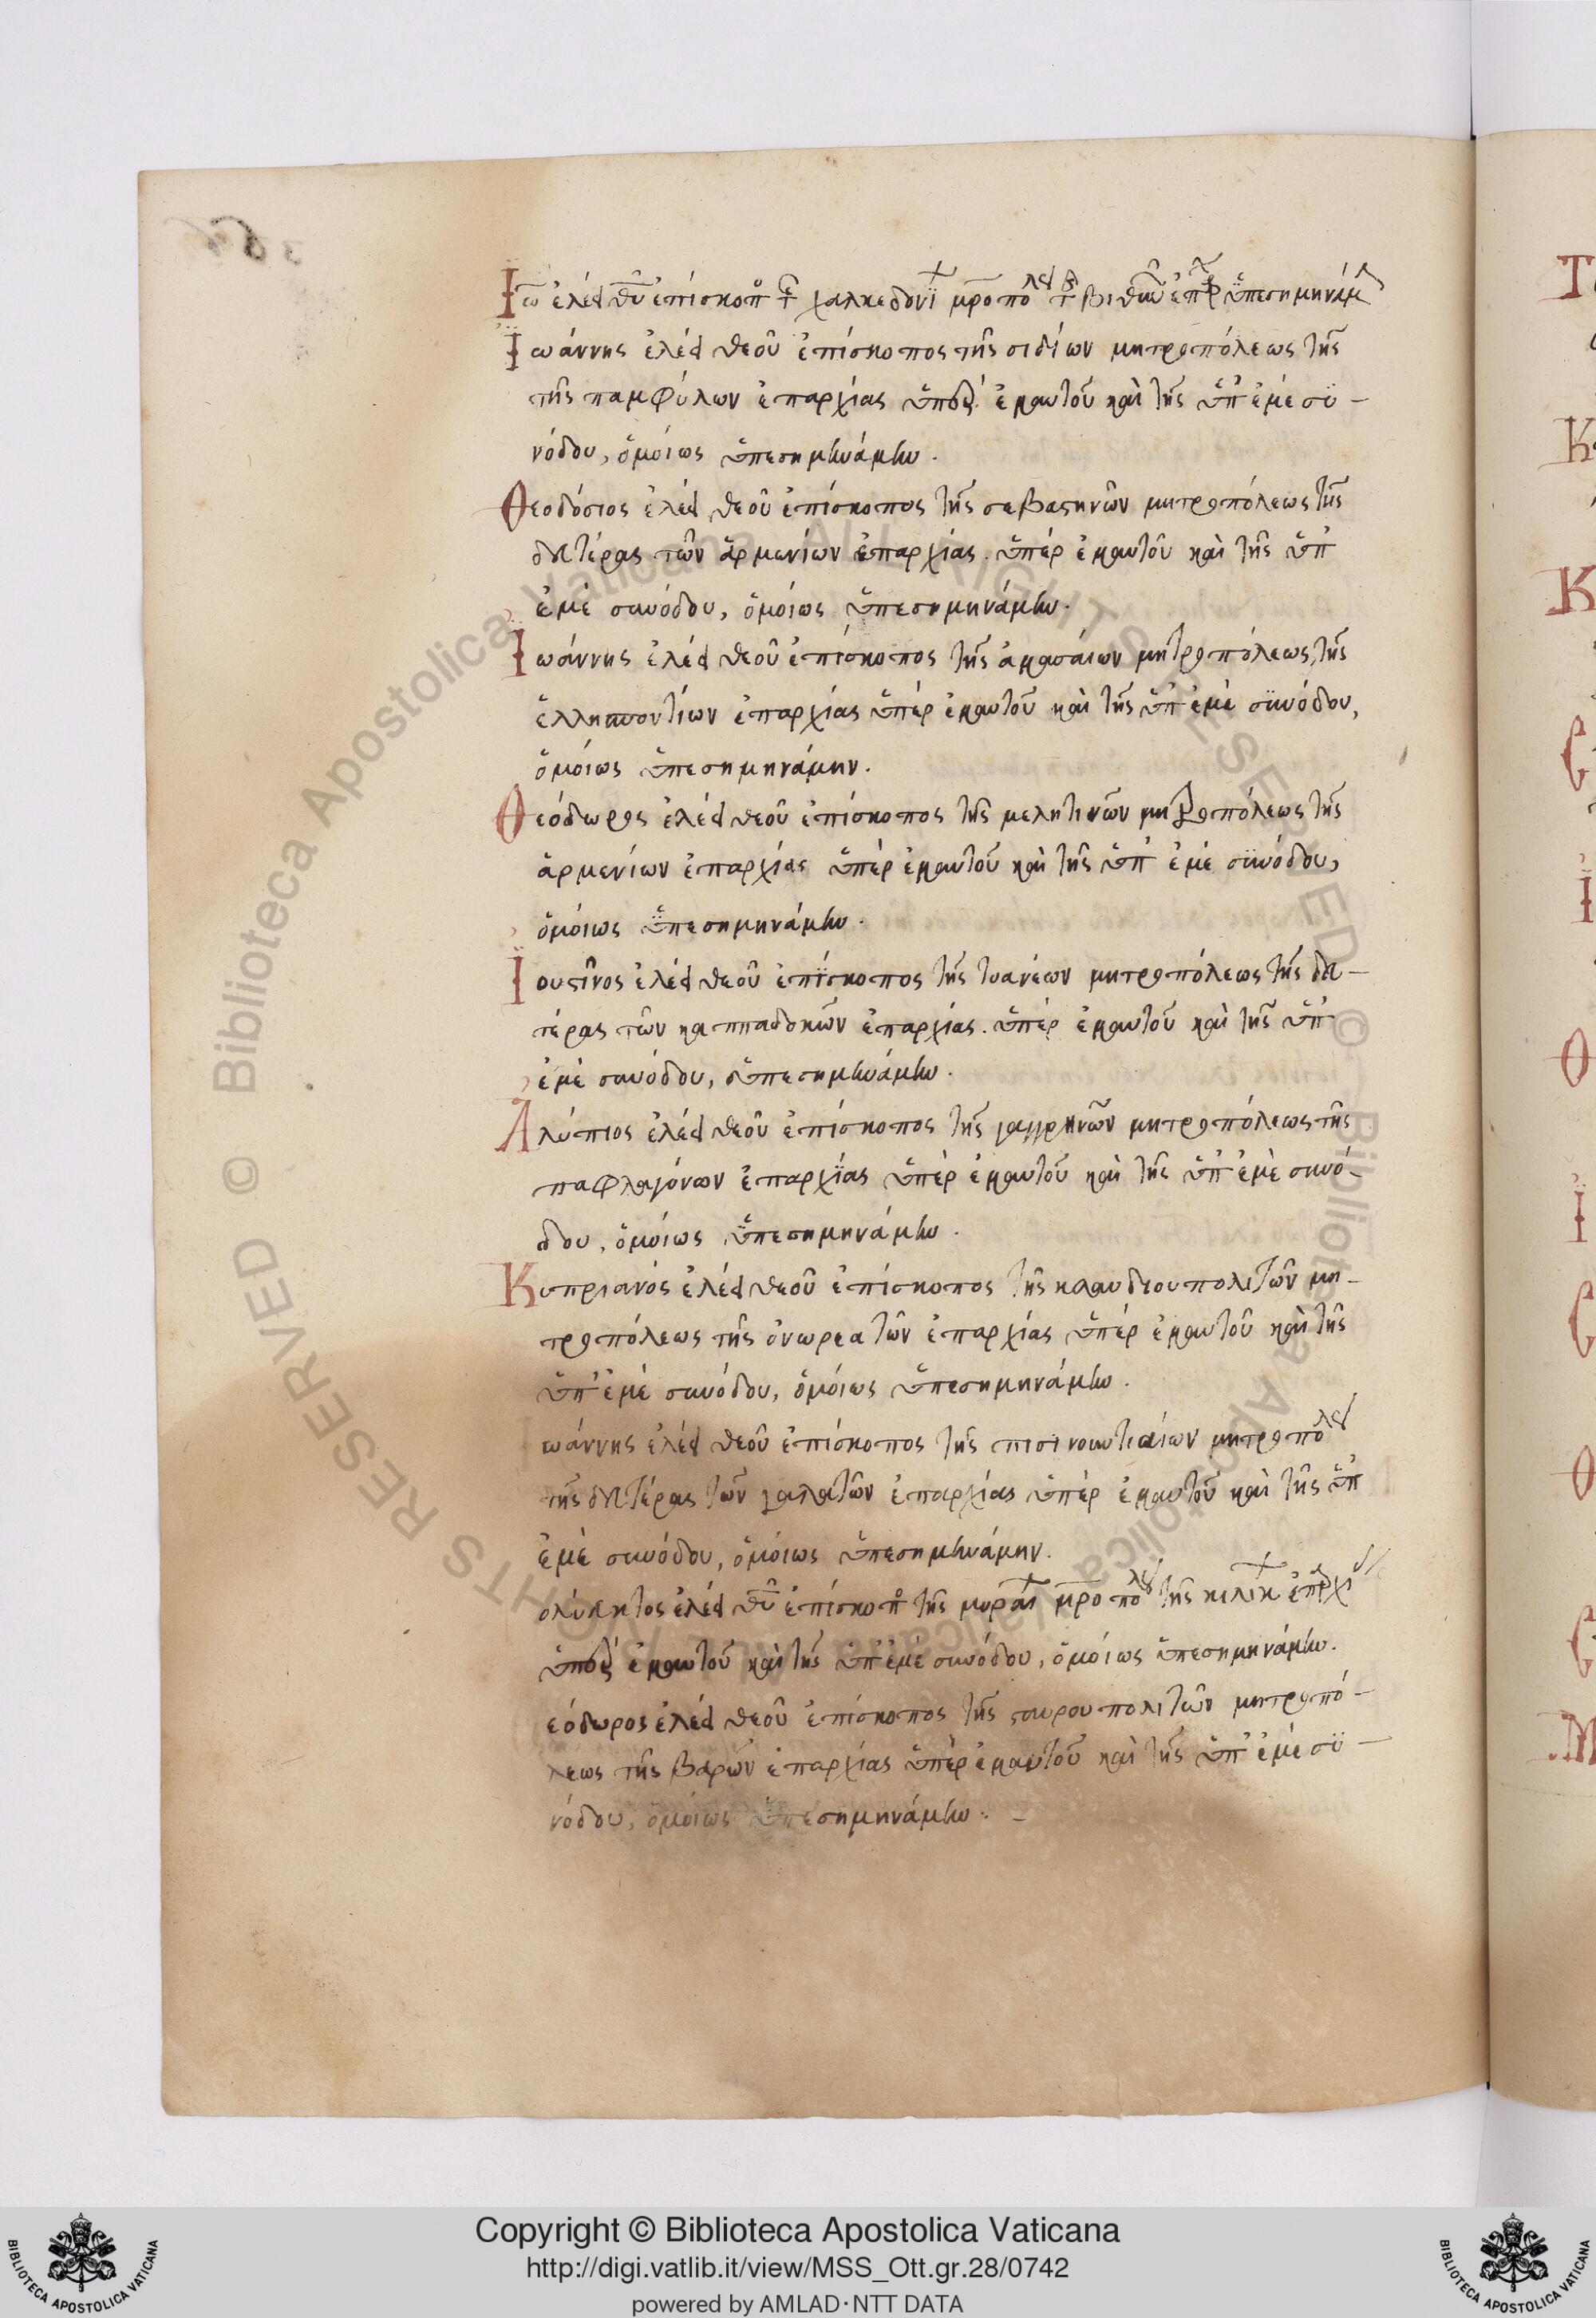 Ἰω ἐλέει θυ ἐπίσκοπ τ χαλκεδονϊ μροπολε τ βιθυν ἐπρ ὑπεσημηνάμ
Ἰωάννης ἐλέει θεοῦ ἐπίσκοπος τῆς σιδίων μητροπόλεως τῆς
τῆς παμφύλων ἐπαρχίας ὑπὲρ ἐμαυτοῦ καὶ τῆς ὑπ ἐμὲ συ-
νόδου, ὁμοίως ὑπεσημηνάμην.
Θεοδόσιος ἐλέει θεοῦ ἐπίσκοπος τῆς σεβαστηνῶν μητροπόλεως τῆς
δευτέρας τῶν ἀρμενίων ἐπαρχίας. ὑπὲρ ἐμαυτοῦ καὶ τῆς ὑπ
ἐμὲ συνόδου, ὁμοίως ὑπεσημηνάμην.
Ἰωάννης ἐλέει θεοῦ ἐπίσκοπος τῆς ἀμασάιων μητροπόλεως, τῆς
ἑλληποντίων ἐπαρχίας ὑπὲρ ἐμαυτοῦ καὶ τῆς ὑπ ἐμὲ συνόδου,
ὁμοίως ὑπεσημηνάμην.
Θεόδωρος ἐλέει θεοῦ ἐπίσκοπος τῆς μελητινῶν μητροπόλεως τῆς
ἀρμενίων ἐπαρχίας ὑπὲρ ἐμαυτοῦ καὶ τῆς ὑπ ἐμὲ συνόδου,
ὁμοίως ὑπεσημηνάμην.
Ἰουστῖνος ἐλέει θεοῦ ἐπίσκοπος τῆς τυανέων μητροπόλεως τῆς δευ-
τέρας τῶν καππαδοκῶν ἐπαρχίας. ὑπὲρ ἐμαυτοῦ καὶ τῆς ὑπ
ἐμὲ συνόδου, ὑπεσημηνάμην.
Ἀλύπιος ἐλέει θεοῦ ἐπίσκοπος τῆς γαγγρηνῶν μητροπόλεως τῆς
παφλαγόνων ἐπαρχίας ὑπὲρ ἐμαυτοῦ καὶ τῆς ὑπ ἐμὲ συνό-
δου, ὁμοίως ὑπεσημηνάμην.
Κυπριανός ἐλέει θεοῦ ἐπίσκοπος τῆς κλαυδιουπολιτῶν μη-
τροπόλεως τῆς ὀνωρεατῶν ἐπαρχίας ὑπὲρ ἐμαυτοῦ καὶ τῆς
ὑπ ἐμὲ συνόδου, ὁμοίως ὑπεσημηνάμην.
ωάννης ἐλέει θεοῦ ἐπίσκοπος τῆς πισινουντιαίων μητροπολε
τῆς δευτέρας τῶν γαλατῶν ἐπαρχίας ὑπὲρ ἐμαυτοῦ καὶ τῆς ὑπ
ἐμὲ συνόδου, ὁμοίως ὑπεσημηνάμην.
ολύκητος ἐλέει θυ ἐπίσκοπ τῆς μυραι μροπολε τῆς κιλικ ἐπρχι
ὑπὲρ ἐμαυτοῦ καὶ τῆς ὑπ ἐμὲ συνόδου, ὁμοίως ὑπεσημηνάμην.
εόδωρος ἐλέει θεοῦ ἐπίσκοπος τῆς σταυρουπολιτῶν μητροπό-
λεως τῆς βαρῶν ἐπαρχίας ὑπὲρ ἐμαυτοῦ καὶ τῆς ὑπ ἐμὲ συ-
νόδου, ὁμοίως ὑπεσημηνάμην.
Copyright © Biblioteca Apostolica Vaticana
http://digi.vatlib.it/view/MSS_Ott.gr.28/0742
powered by AMLAD·NTT DATA